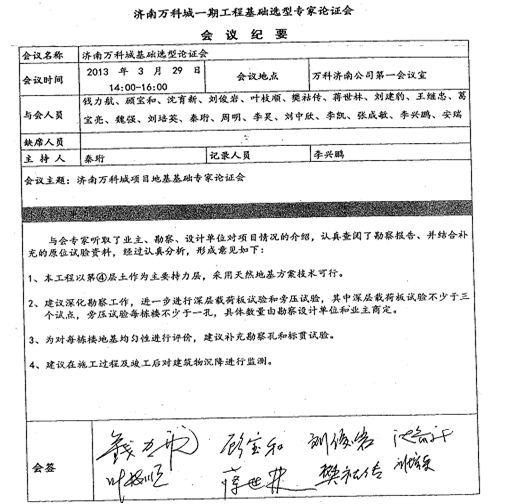 济南万科城一期工程基础选型专家论证会
会 议 纪 要
会议名称 济南万科城基础选型论证会
会议时间 2013 年 3 月 29 日 14:00-16:00 会议地点 万科济南公司第一会议室
与会人员 钱力航、顾宝和、沈育新、刘俊岩、叶枝顺、樊祜传、蒋世林、刘建韵、王继忠、葛
宝亮、魏强、刘培英、秦珩、周明、李炅、刘中欣、李凯、张成敏、李兴鹏、安瑞
缺席人员
主 持 人 秦珩 记录人员 李兴鹏
会议主题：济南万科城项目地基基础专家论证会
与会专家听取了业主、勘察、设计单位对项目情况的介绍，认真查阅了勘察报告、并结合补
充的原位试验资料，经过认真分析，形成意见如下：
1、本工程以第④层土作为主要持力层，采用天然地基方案技术可行。
2、建议深化勘察工作，进一步进行深层载荷板试验和旁压试验，其中深层载荷板试验不少于三
个试点，旁压试验每栋楼不少于一孔，具体数量由勘察设计单位和业主商定。
3、为对每栋楼地基均匀性进行评价，建议补充勘察孔和标贯试验。
4、建议在施工过程及竣工后对建筑物沉降进行监测。
会签
钱力航 顾宝和 刘俊岩
叶枝顺 蒋世林 樊祜传